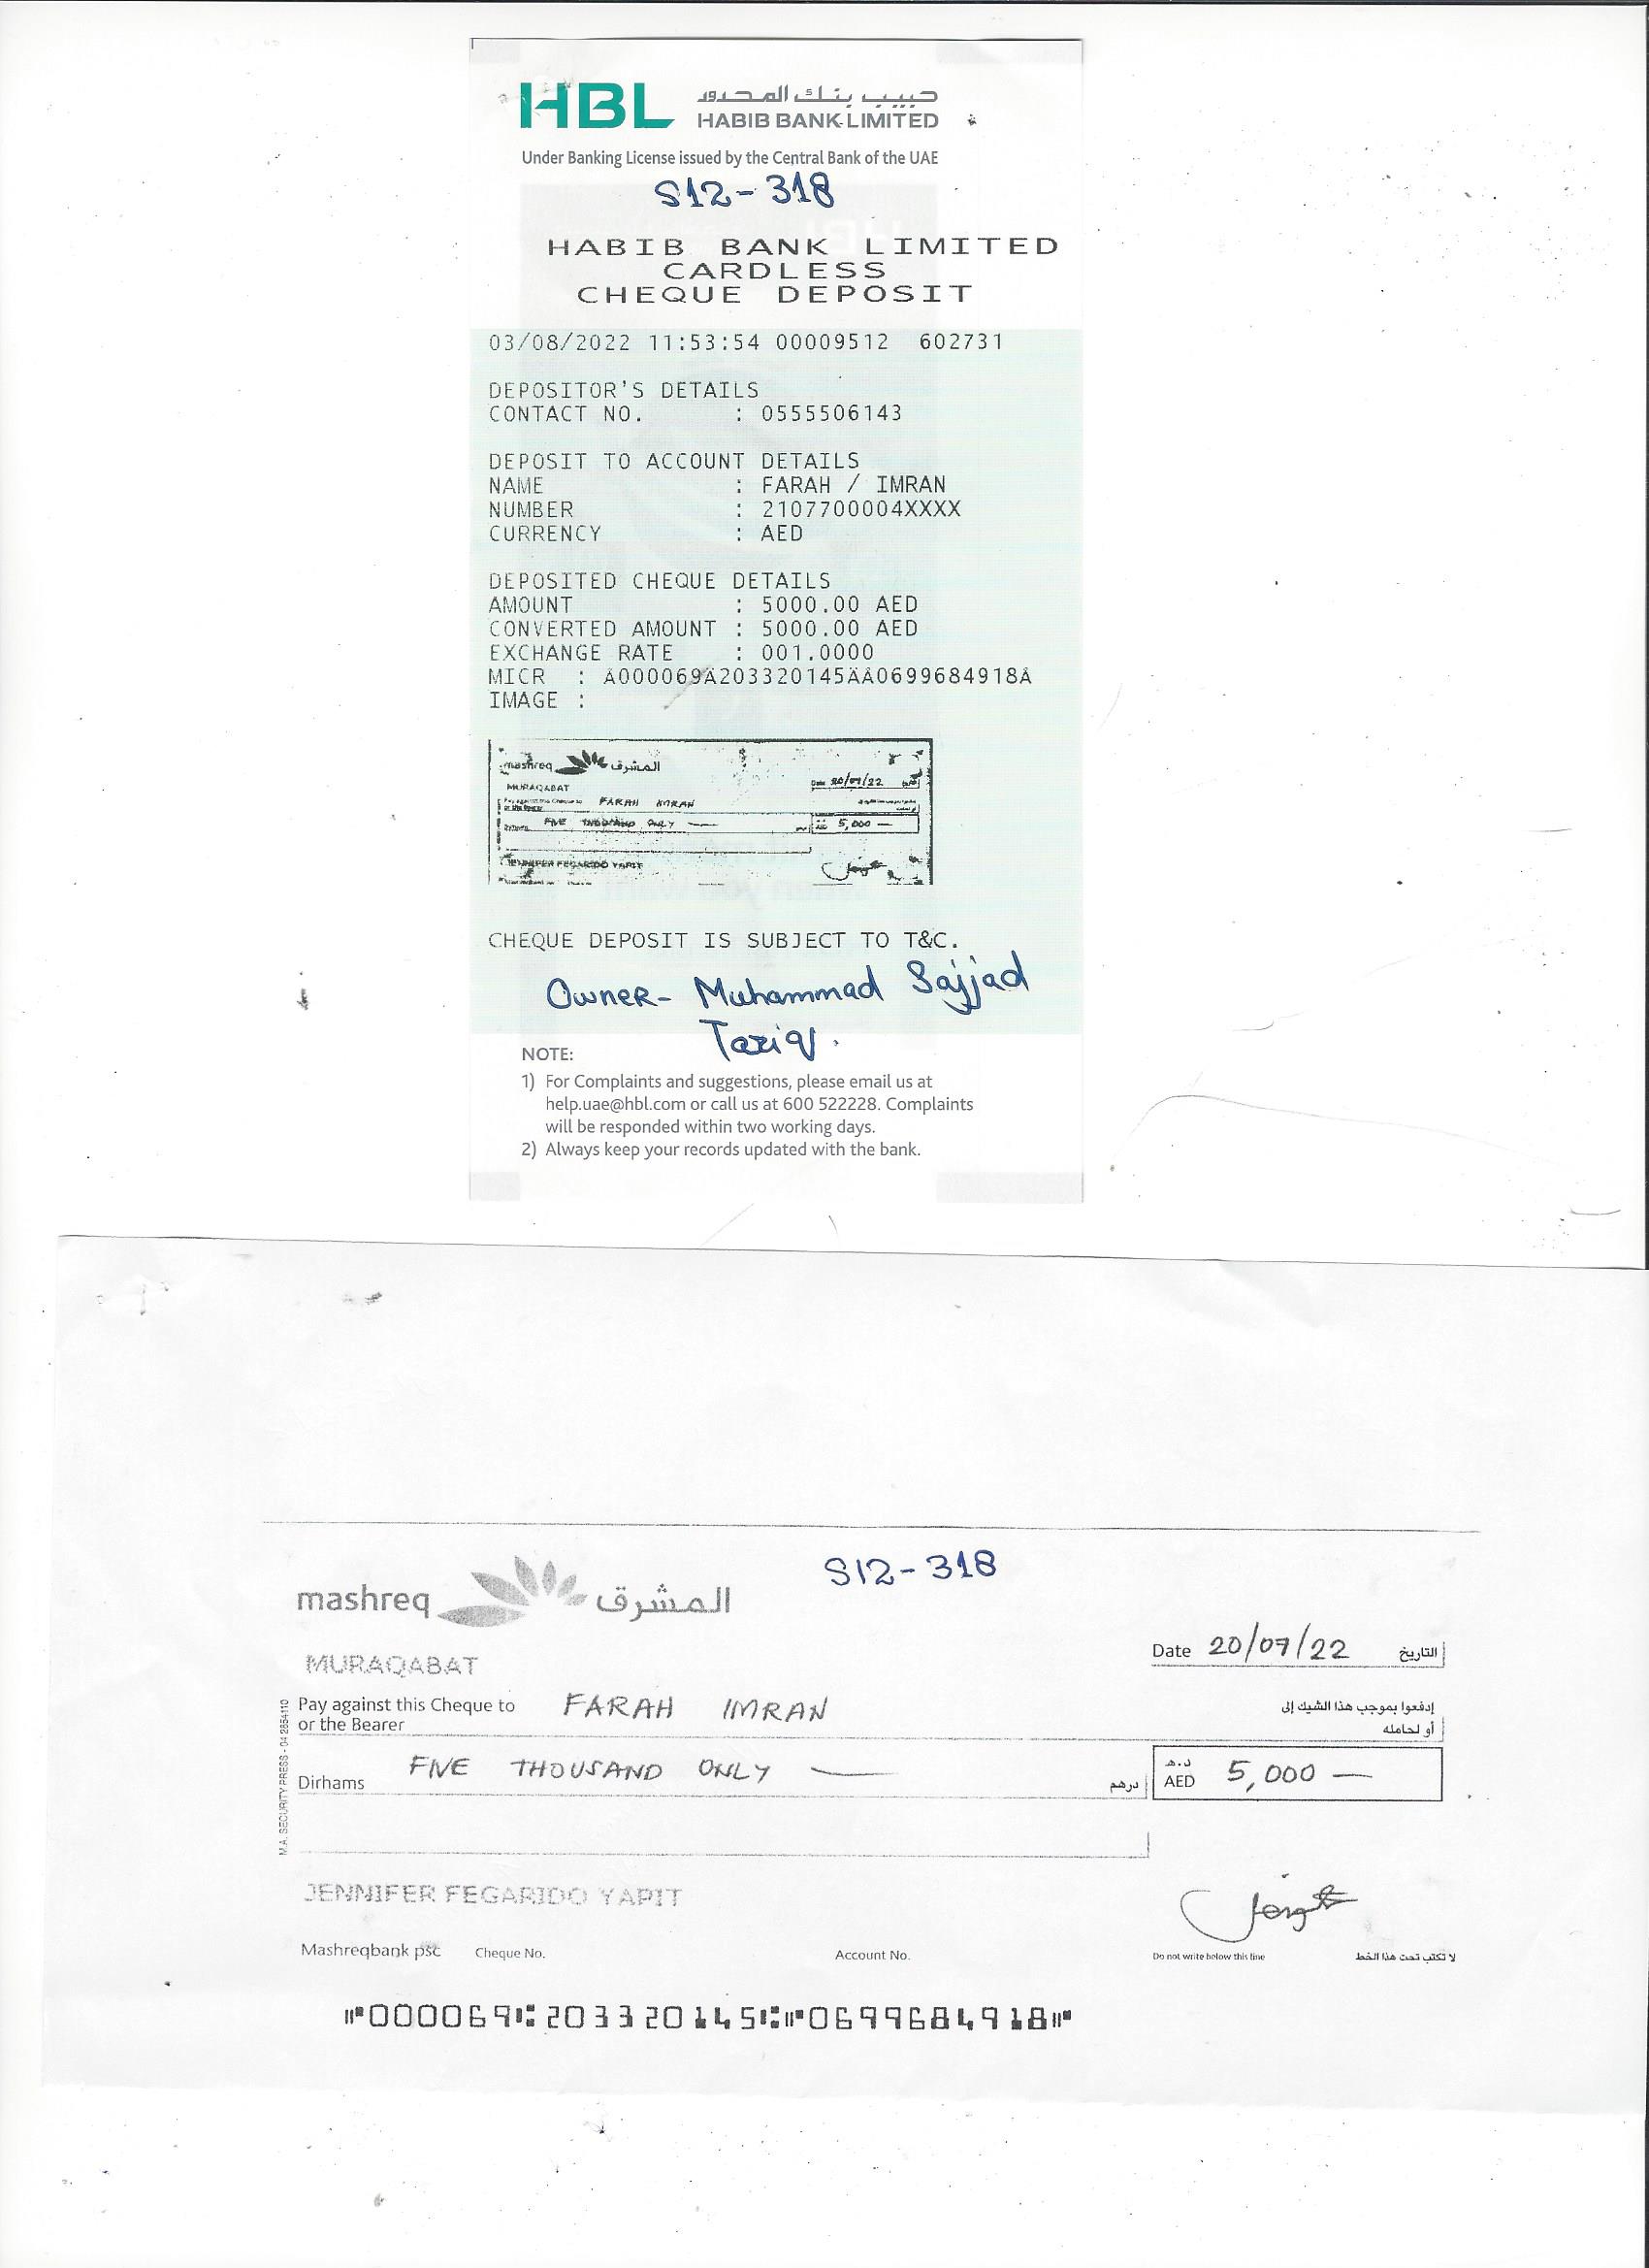 HBL حبيب بنك المحدود
HABIB BANK LIMITED
Under Banking License issued by the Central Bank of the UAE
S12-318
HABIB BANK LIMITED
CARDLESS
CHEQUE DEPOSIT
03/08/2022 11:53:54 00009512 602731
DEPOSITOR'S DETAILS
CONTACT NO. : 0555506143
DEPOSIT TO ACCOUNT DETAILS
NAME : FARAH / IMRAN
NUMBER : 2107700004XXXX
CURRENCY : AED
DEPOSITED CHEQUE DETAILS
AMOUNT : 5000.00 AED
CONVERTED AMOUNT : 5000.00 AED
EXCHANGE RATE : 001.0000
MICR : A000069A203320145AA0699684918A
IMAGE :
mashreq المشرق
Date 20/07/22
MURAQABAT
Pay against this Cheque to FARAH IMRAN
or the Bearer
Dirhams FIVE THOUSAND ONLY — 5,000 —
JENNIFER FEGARIDO YAPIT
CHEQUE DEPOSIT IS SUBJECT TO T&C.
Owner- Muhammad Sajjad
Tariq.
NOTE:
1) For Complaints and suggestions, please email us at
help.uae@hbl.com or call us at 600 522228. Complaints
will be responded within two working days.
2) Always keep your records updated with the bank.
S12-318
mashreq المشرق
Date 20/07/22 التاريخ
MURAQABAT
Pay against this Cheque to FARAH IMRAN إدفعوا بموجب هذا الشيك إلى
or the Bearer أو لحامله
Dirhams FIVE THOUSAND ONLY — درهم د.هـ AED 5,000 —
M.A. SECURITY PRESS - 04 2854110
JENNIFER FEGARIDO YAPIT
Mashreqbank psc Cheque No. Account No. Do not write below this line لا تكتب تحت هذا الخط
⑈000069⑆203320145⑆⑈0699684918⑈